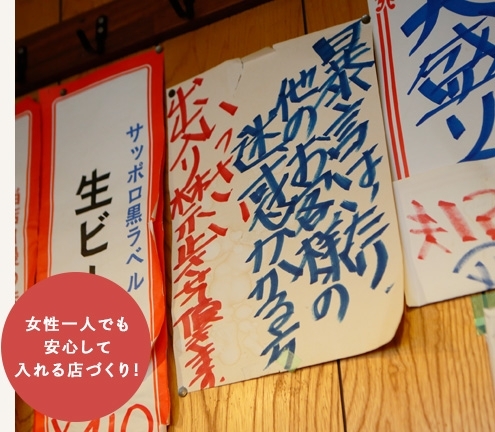 大盛ソ
暴言はいたり
他のお客様の
迷惑かかる方
いっさい
出入り禁止させ頂きます
サッポロ黒ラベル
生ビー
女性一人でも
安心して
入れる店づくり!